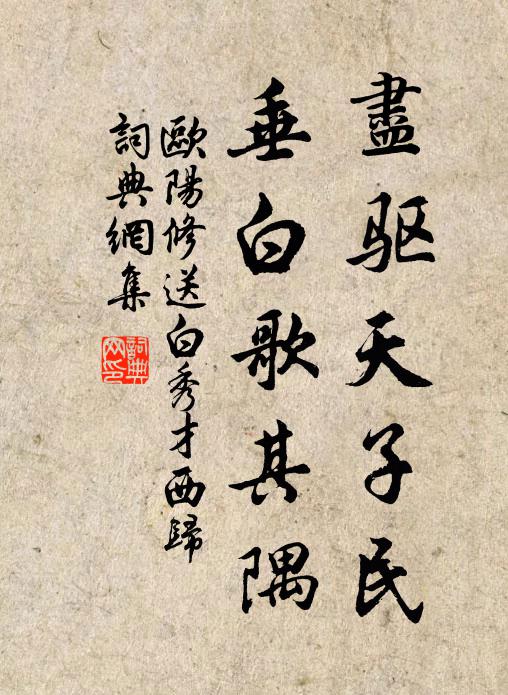 盡驱天子民
垂白歌其隅
歐陽修送白秀才西歸
詞典網集
詞典網印